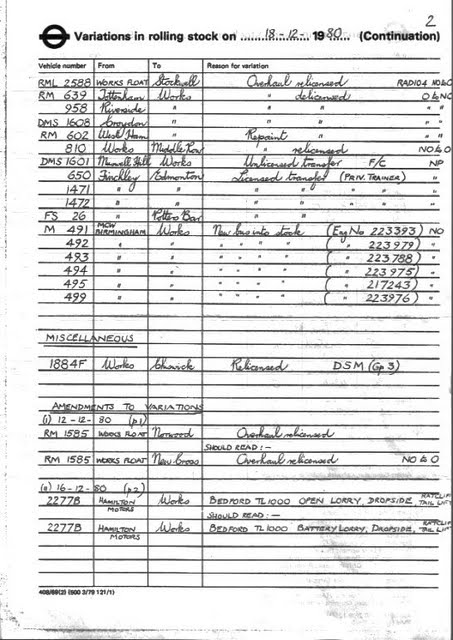 2
Variations in rolling stock on 18-12- 1980 (Continuation)
Vehicle number From To Reason for variation
RML 2588 WORKS FLOAT Stockwell Overhaul relicensed RADIO4 NO&O
RM 639 Tottenham Works " delicensed O&NO
958 Riverside " " " " "
DMS 1608 Croydon " " " "
RM 602 West Ham " Repaint " "
810 Works Middle Row " relicensed NO&O
DMS 1601 Muswell Hill Works Unlicensed transfer F/C NP
650 Finchley Edmonton Licensed transfer (PRIV. TRAINER) "
1471 " " " " "
1472 " " " " "
FS 26 " Potters Bar " " "
M 491 MCW BIRMINGHAM Works New bus into stock (Eng No 223393) NO
492 " " " " " " ( " 223979) "
493 " " " " " " ( " 223788) "
494 " " " " " " ( " 223975) "
495 " " " " " " ( " 217243) "
499 " " " " " " ( " 223976) "
MISCELLANEOUS
1884F Works Chiswick Relicensed DSM (Gp 3)
AMENDMENTS TO VARIATIONS
(i) 12-12-80 (p1)
RM 1585 WORKS FLOAT Norwood Overhaul relicensed
SHOULD READ:-
RM 1585 WORKS FLOAT New Cross Overhaul relicensed NO&O
(ii) 16-12-80 (p2)
2277B HAMILTON MOTORS Works BEDFORD TL1000 OPEN LORRY, DROPSIDE, RATCLIFF TAIL LIFT
SHOULD READ:-
2277B HAMILTON MOTORS Works BEDFORD TL1000 BATTERY LORRY, DROPSIDE, RATCLIFF TAIL LIFT
408/69(2) (500 3/79 121/1)